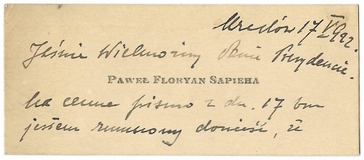 17 V 1922.
Jaśnie Wielmożny Panie Prezydencie
PAWEŁ FLORYAN SAPIEHA
Na cenne pismo z dn. 17 bm
jestem zmuszony donieść, iż